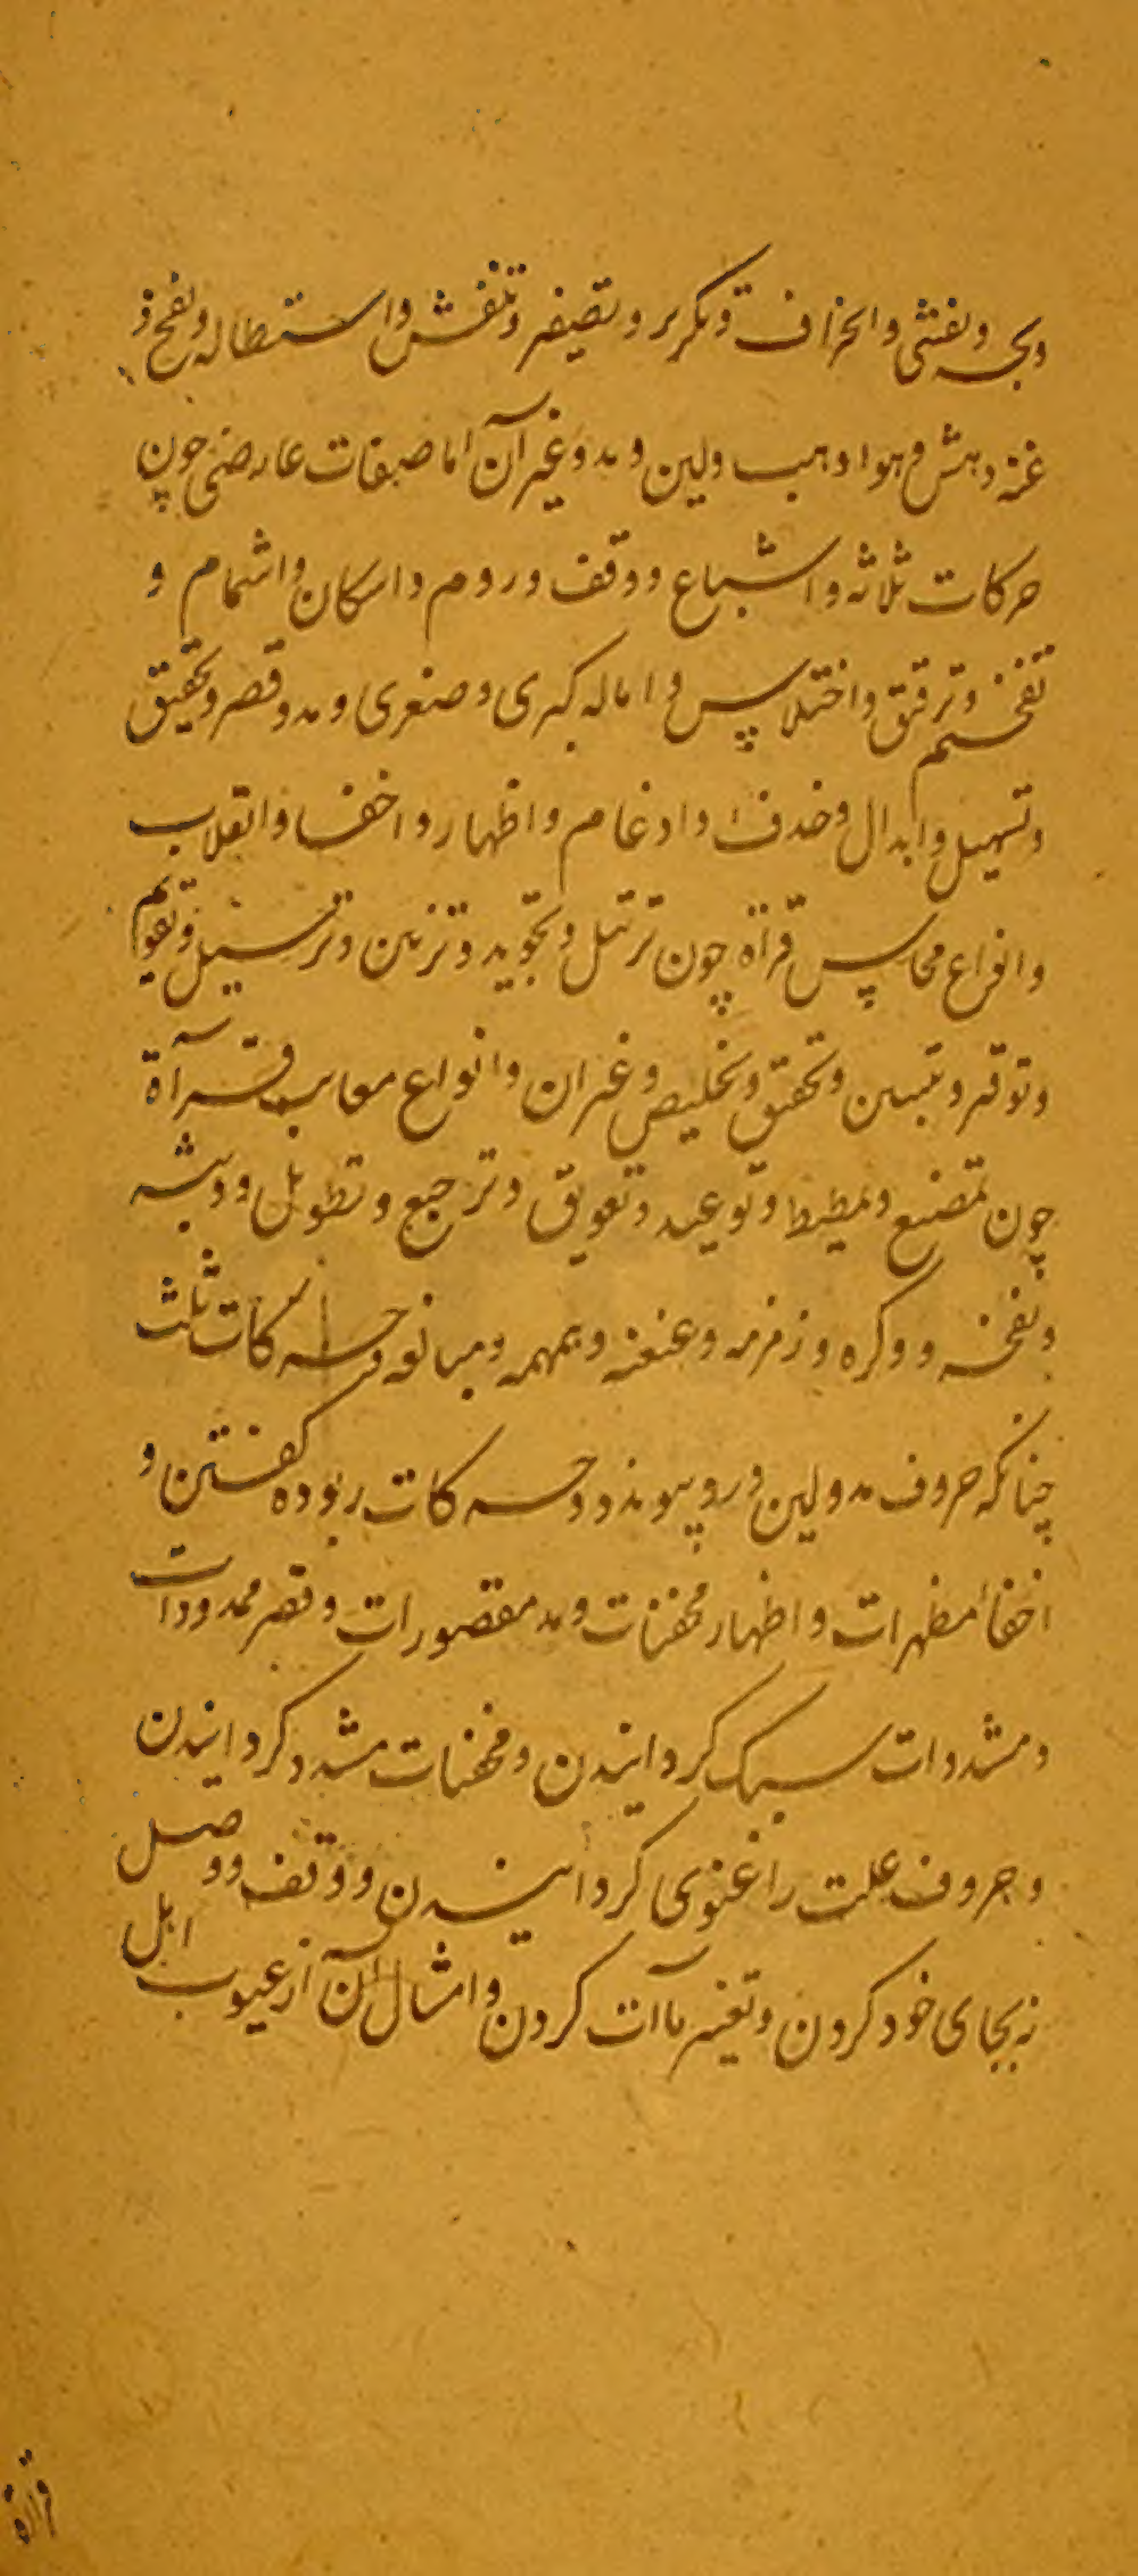 و بحه و تفشی و انحراف و تکریر و تصفیر و تنفش و استطاله و نفخ و
غنه و هتش و هوا و هب و لین و مد و غیر آن اما صفات عارضی چون
حرکات ثلاثه و اشباع و وقف و روم و اسکان و اشمام و
تفخیم و ترقیق و اختلاس و اماله کبری و صغری و مد و قصر و تحقیق
و تسهیل و ابدال و حذف و ادغام و اظهار و اخفا و انقلاب
و انواع محاسن قرآة چون ترتیل و تجوید و تزیین و ترسیل و تقویم
و توقیر و تبیین و تحقیق و تخلیص و غیر آن و انواع معایب قرآة
چون تمضیغ و تمطیط و توعید و تعویق و ترجیع و تطویل و وثبه
و نفخه و وکره و زمزمه و عنعنه و همهمه و مبالغه حرکات ثلث
چنانکه حروف مد و لین درو پیوندد و حرکات ربوده کفتن و
اخفا مظهرات و اظهار مخفیات و مد مقصورات و قصر ممدودات
و مشددات سبک کردانیدن و مخففات مشدد کردانیدن
و حروف علت را غنوی کردانیدن و وقف و وصل
نه بجای خود کردن و تغییر یاآت کردن و امثال آن از عیوب اهل
قرآة